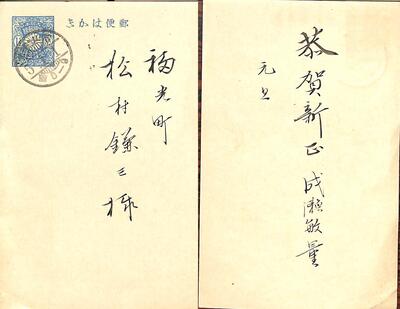 郵便はかき
福光町
松村鎌三様
恭賀新正 成瀬敏量
元旦